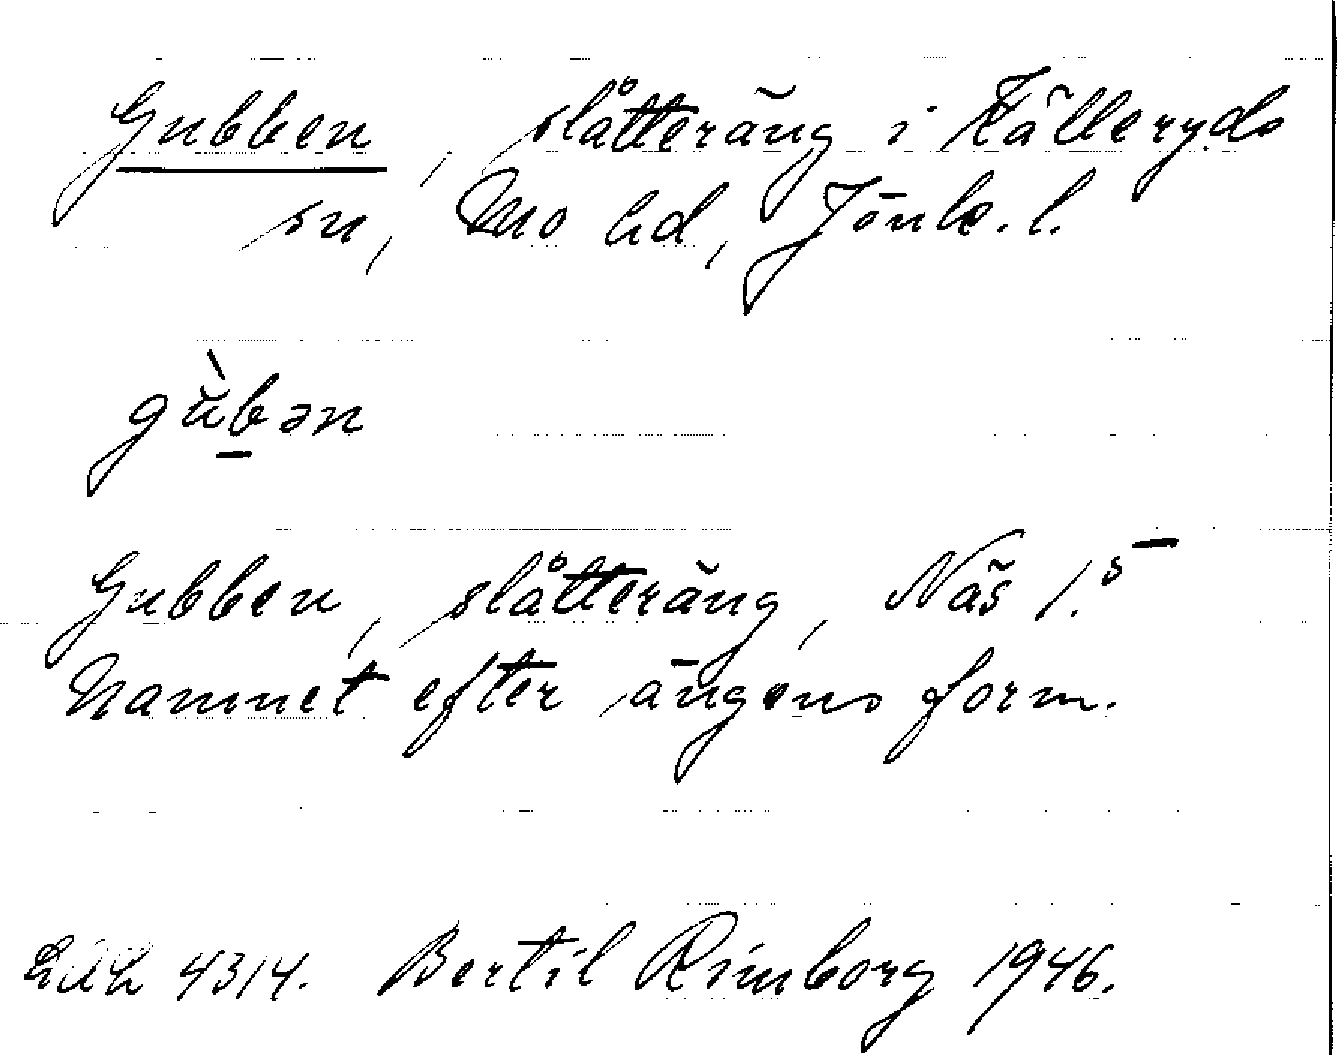 Gubben, slåtteräng i Källeryds
sn, Mo hd, Jönk. l.
gùbən
Gubben, slåtteräng, Näs 1.5
Namnet efter ängens form.
4314. Bertil Rimborg 1946.